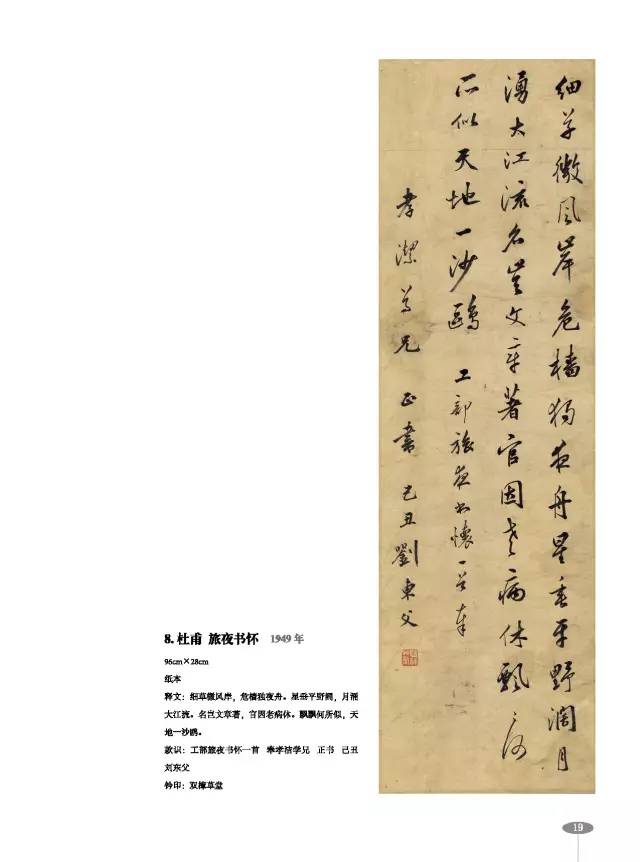 細草微風岸危檣獨夜舟星垂平野濶月
湧大江流名豈文章著官因老病休飄〻何
所似天地一沙鷗 工部旅夜書懷一首奉
孝潔學兄 正書 己丑劉東父
8. 杜甫 旅夜书怀 1949年
96cm×28cm
纸本
释文：细草微风岸，危樯独夜舟。星垂平野阔，月涌
大江流。名岂文章著，官因老病休。飘飘何所似，天
地一沙鸥。
款识：工部旅夜书怀一首 奉孝洁学兄 正书 己丑
刘东父
钤印：双樟草堂
19